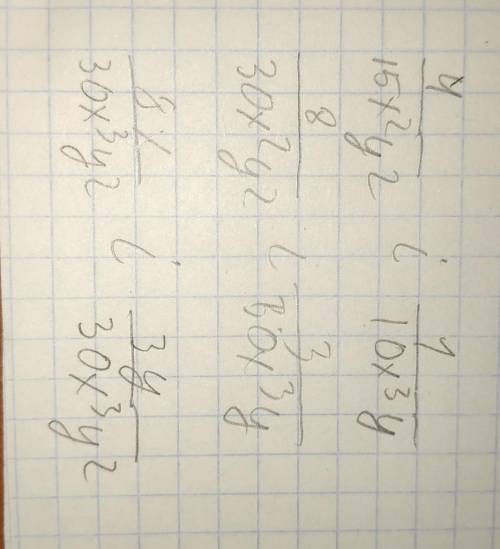 4/(15x²y²) i 1/(10x³y)
8/(30x²y²) i 3/(30x³y)
8x/(30x³y²) i 3y/(30x³y²)